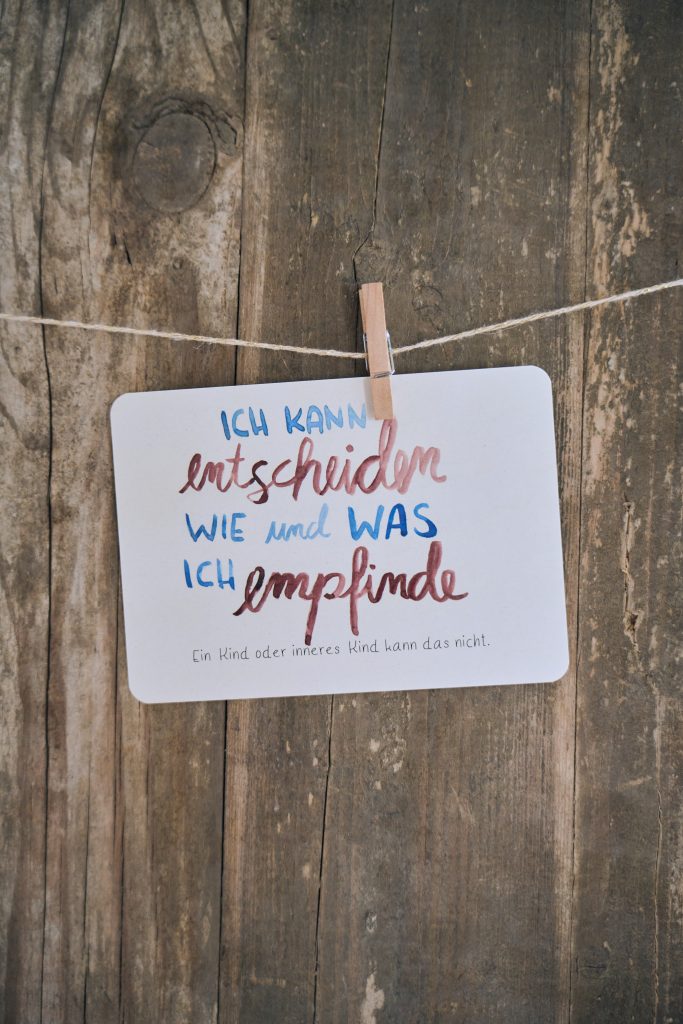 ICH KANN
entscheiden
WIE und WAS
ICH empfinde
Ein Kind oder inneres Kind kann das nicht.